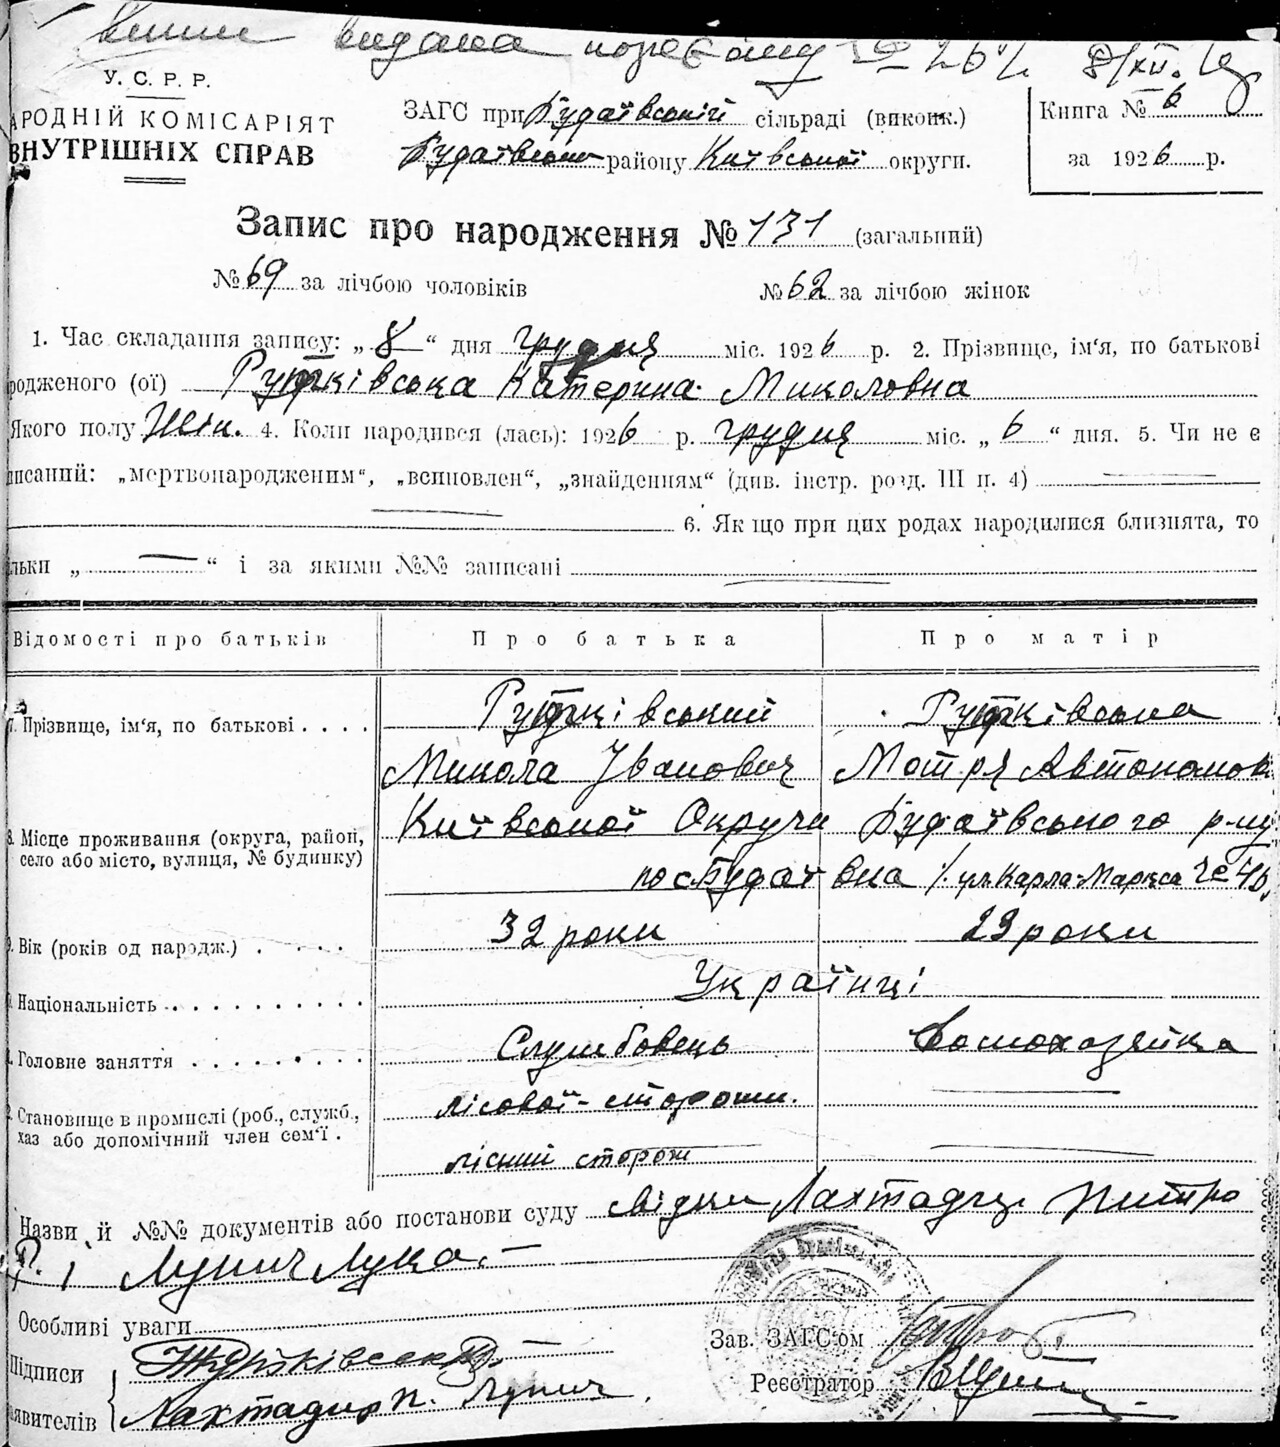 видана
У. С. Р. Р.
АРОДНІЙ КОМІСАРІЯТ
ВНУТРІШНІХ СПРАВ
ЗАГС при Будаївській сільраді (викон.)
Будаївського району Київської округи.
Книга № 6
за 1926 р.
Запис про народження № 131 (загальний)
№ 69 за лічбою чоловіків
№ 62 за лічбою жінок
1. Час складання запису: „ 8 “ дня грудня міс. 1926 р. 2. Прізвище, ім'я, по батькові
родженого (ої) Катерина Миколовна
Якого полу Жін. 4. Коли народився (лась): 1926 р. грудня міс. „ 6 “ дня. 5. Чи не є
писаний: „мертвонародженим“, „всиновлен“, „знайденням“ (див. інстр. розд. III п. 4)
6. Якщо при цих родах народилися близнята, то
льки „ — “ і за якими №№ записані
Відомості про батьків
Про батька
Про матір
7. Прізвище, ім'я, по батькові
Микола Іванович
Мотря Автономов
8. Місце проживання (округа, район, село або місто, вулиця, № будинку)
Київської Округи Будаївського р-ну
пос Будаївка ул. Карла-Маркса
9. Вік (років од народж.)
32 роки
29 роки
Національність
Українці
Головне заняття
Службовець
Домохазяйка
лісової-сторожи.
Становище в промислі (роб., служб., хаз або допомічний член сем'ї .
лісний сторож
Назви й №№ документів або постанови суду свідки Лахтадир
і Лупич Лука.
Особливі уваги
Підписи
явителів
Лахтадир П. Лупич
Зав. ЗАГС'ом
Реєстратор